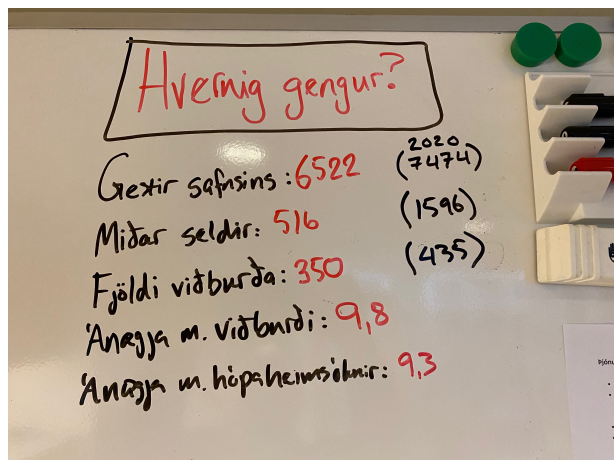 Hvernig gengur?
2020
Gestir safnsins: 6522 (7474)
Miðar seldir: 516 (1596)
Fjöldi viðburða: 350 (435)
Ánægja m. viðburði: 9,8
Ánægja m. hópaheimsóknir: 9,3